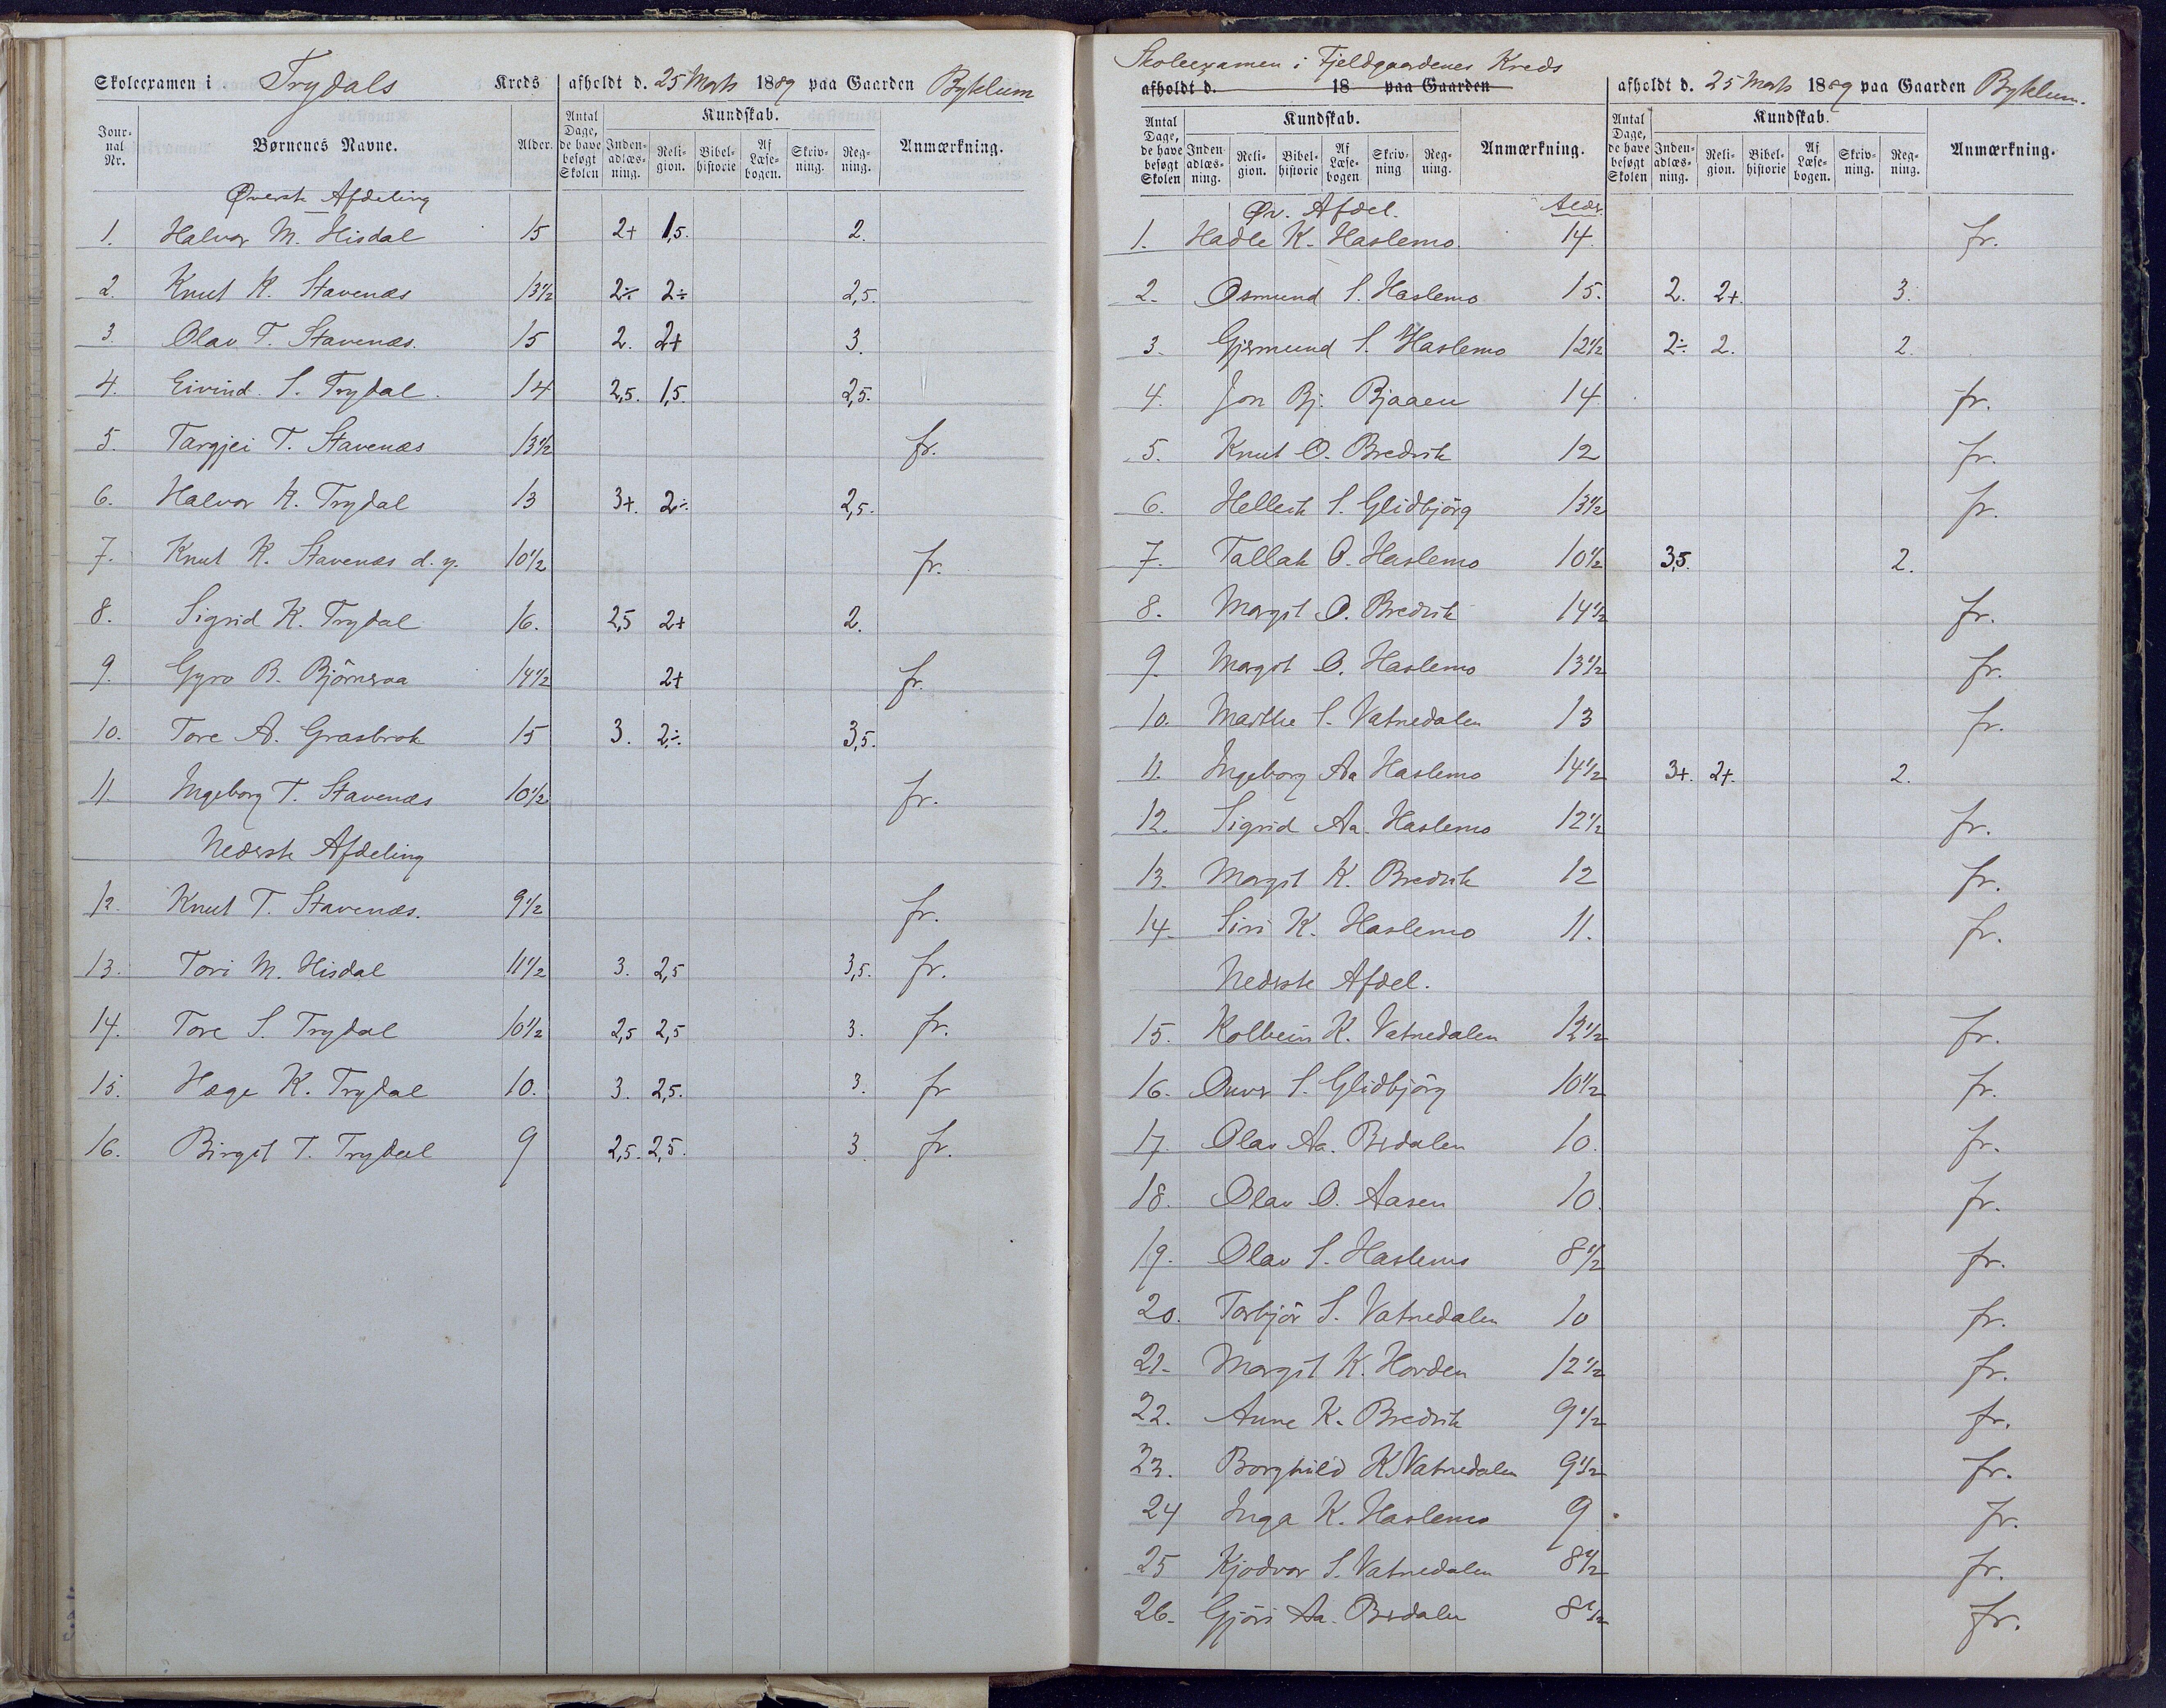 Skoleexamen i Trydals Kreds afholdt d. 25 Marts 1889 paa Gaarden Byklum
Jour-nal Nr. Børnenes Navne. Alder. Antal Dage, de have besøgt Skolen Kundskab. Inden-adlæs-ning. Reli-gion. Bibel-historie Af Læse-bogen. Skriv-ning. Reg-ning. Anmærkning.
Øverste Afdeling
1. Halvor M. Hisdal 15 2+ 1,5. 2.
2. Knut K. Stavenæs 13 1/2 2÷ 2÷ 2,5.
3. Olav T. Stavenæs. 15 2. 2+ 3.
4. Eivind S. Trydal. 14 2,5. 1,5. 2,5.
5. Targjei T. Stavenæs 13 1/2 fr.
6. Halvor K. Trydal 13 3+. 2÷. 2,5.
7. Knut K. Stavenæs d. y. 10 1/2 fr.
8. Sigrid K. Trydal 16. 2,5 2+ 2.
9. Gyro B. Björnsvaa 14 1/2 2+ fr.
10. Tore A. Grasbrok 15 3. 2÷. 3,5.
11. Ingeborg T. Stavenæs 10 1/2 fr.
Nederste Afdeling
12. Knut T. Stavenæs. 9 1/2 fr.
13. Tori M. Hisdal 11 1/2 3. 2,5 3,5. fr.
14. Tore S. Trydal 10 1/2 2,5 2,5 3. fr.
15. Hæge K. Trydal 10. 3. 2,5. 3. fr
16. Birgit T. Trydal 9 2,5. 2,5. 3 fr.
Skoleexamen i Fjeldgaardenes Kreds
afholdt d. 18 paa Gaarden afholdt d. 25 Marts 1889 paa Gaarden Byklum.
Antal Dage, de have besøgt Skolen Kundskab. Inden-adlæs-ning. Reli-gion. Bibel-historie Af Læse-bogen Skriv-ning Reg-ning. Anmærkning. Antal Dage, de have besøgt Skolen Kundskab. Inden-adlæs-ning. Reli-gion. Bibel-historie Af Læse-bogen. Skriv-ning. Reg-ning. Anmærkning.
Øv. Afdel. Alder
1. Hadle K. Haslemo. 14. fr.
2. Osmund S. Haslemo 15. 2. 2+. 3.
3. Gjermund S. Haslemo 12 1/2 2÷ 2. 2.
4. Jon Bj. Bjaaen 14 fr.
5. Knut O. Bredvik 12 fr.
6. Helleik S. Glidbjörg 13 1/2 fr.
7. Tallak O. Haslemo 10 1/2 3,5. 2.
8. Margit O. Bredvik 14 1/2 fr.
9. Margit O. Haslemo 13 1/2 fr.
10. Marthe S. Vatnedalen 13 fr.
11. Ingeborg Aa Haslemo 14 1/2 3+. 2+. 2.
12. Sigrid Aa. Haslemo 12 1/2 fr.
13. Margit K. Bredvik 12 fr.
14. Siri K. Haslemo 11. fr.
Nederste Afdel.
15. Kolbein K. Vatnedalen 12 1/2 fr.
16. S. Glidbjörg 10 1/2 fr.
17. Olav Aa. Berdalen 10. fr.
18. Olav O. Aasen 10. fr.
19. Olav S. Haslemo 8 1/2 fr.
20. Torbjör S. Vatnedalen 10 fr.
21. Margit K. Horden 12 1/2 fr.
22. Anne K. Bredvik 9 1/2 fr.
23. Borghild K Vatnedalen 9 1/2 fr.
24 Inga K. Haslemo 9 fr.
25 Kjodvor S. Vatnedalen 8 1/2 fr.
26. Gjöri Aa. Berdalen 8 1/2 fr.